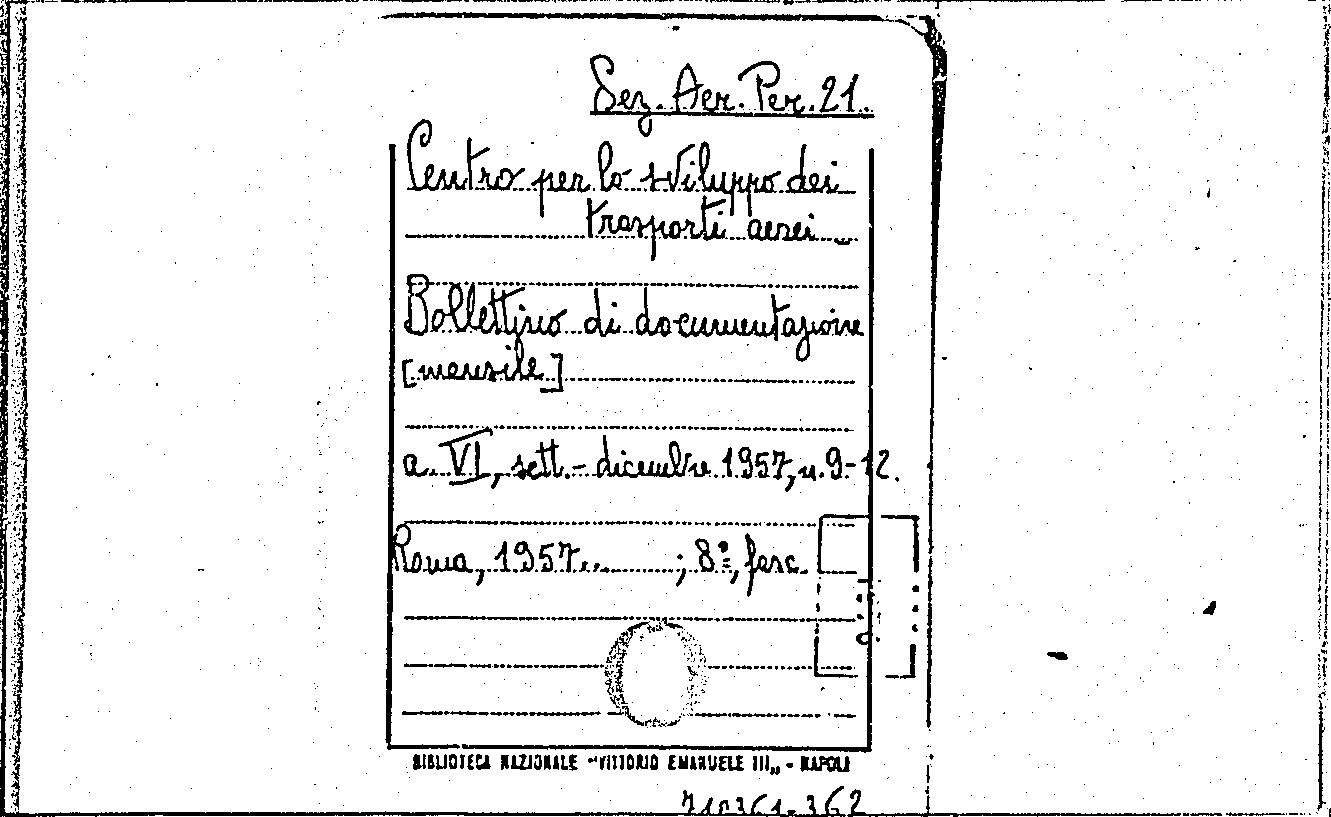 Sez. Aer. Per. 21.
Centro per lo sviluppo dei
trasporti aerei
Bollettino di documentazione
[mensile]
a. VI, sett. - dicembre 1957, n. 9-12.
Roma, 1957... ; 8º, fasc.
BIBLIOTECA NAZIONALE "VITTORIO EMANUELE III„ - NAPOLI